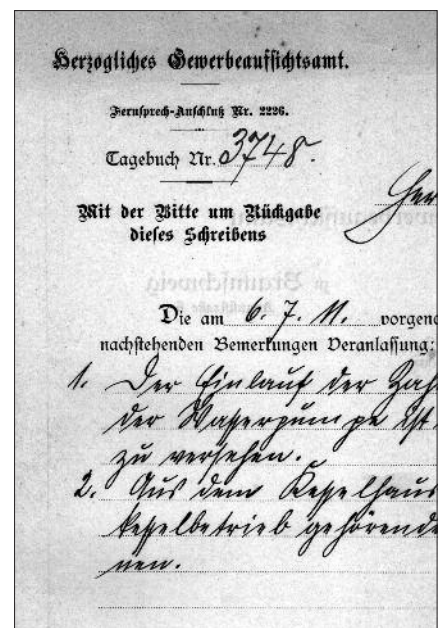 Herzogliches Gewerbeaufsichtsamt.
Fernsprech-Anschluß Nr. 2226.
Tagebuch Nr. 3748.
Mit der Bitte um Rückgabe
dieses Schreibens
Her
Braunschweig
Die am 6. 7. 11. vorgeno
nachstehenden Bemerkungen Veranlassung:
1. Der Einlauf der Zah
der Wasserpumpe ist
zu versehen.
2. Aus dem Kesselhaus
kesselbetrieb gehörende
nen.